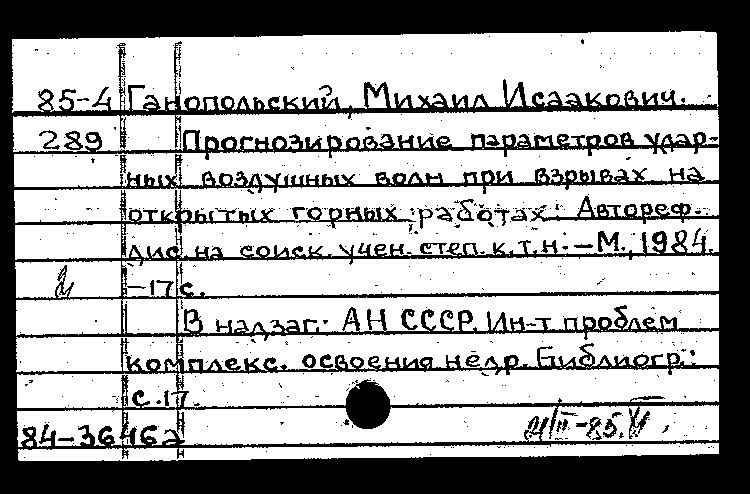 85-4 Ганопольский, Михаил Исаакович.
289 Прогнозирование параметров удар-
ных воздушных волн при взрывах на
открытых горных работах: Автореф.
дис. на соиск. учен. степ. к.т.н. - М., 1984.
-17 с.
В надзаг.: АН СССР. Ин-т проблем
комплекс. освоения недр. Библиогр.:
с. 17.
84-36462